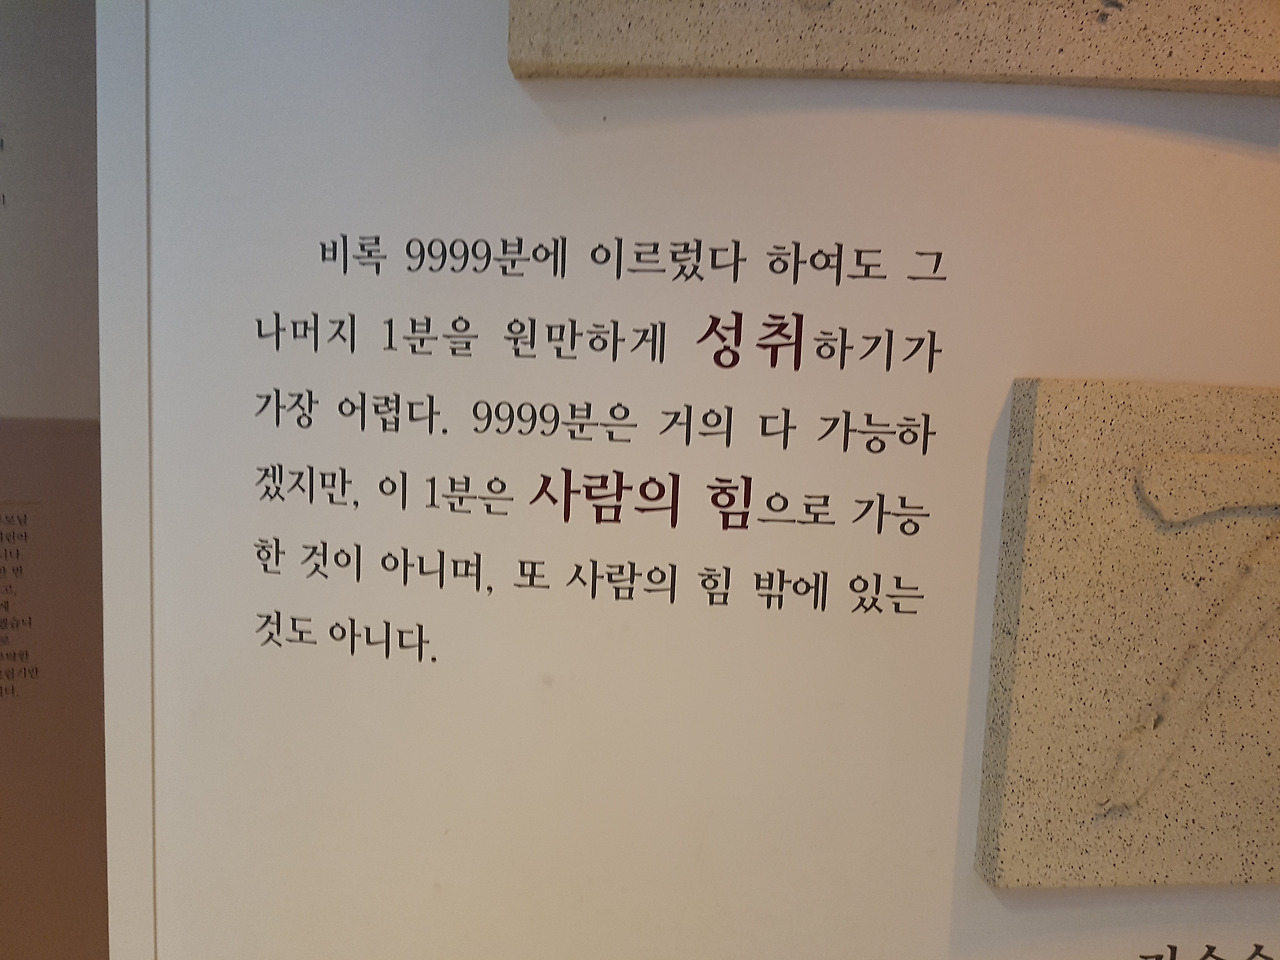 비록 9999분에 이르렀다 하여도 그
나머지 1분을 원만하게 성취하기가
가장 어렵다. 9999분은 거의 다 가능하
겠지만, 이 1분은 사람의 힘으로 가능
한 것이 아니며, 또 사람의 힘 밖에 있는
것도 아니다.